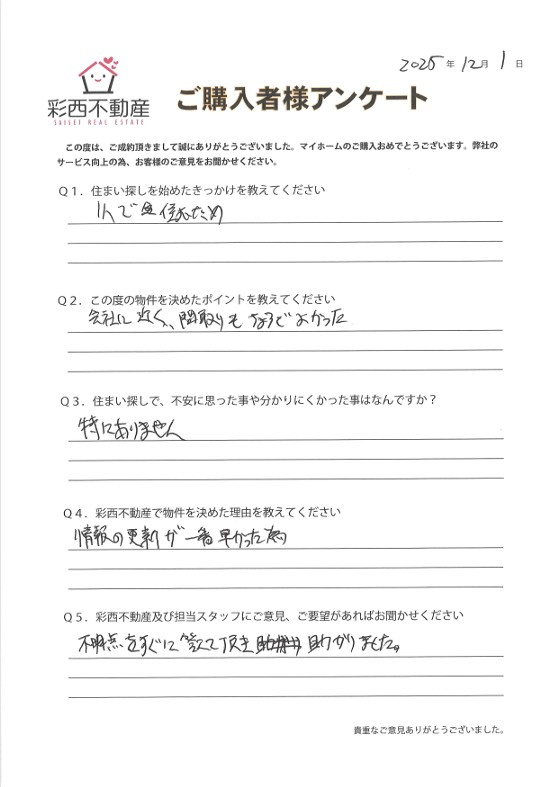 2025年12月1日
彩西不動産
SAISEI REAL ESTATE
ご購入者様アンケート
この度は、ご成約頂きまして誠にありがとうございました。マイホームのご購入おめでとうございます。弊社の
サービス向上の為、お客様のご意見をお聞かせください。
Q1．住まい探しを始めたきっかけを教えてください
1人で住むため
Q2．この度の物件を決めたポイントを教えてください
会社に近く、間取りもちょうどよかった
Q3．住まい探しで、不安に思った事や分かりにくかった事はなんですか？
特にありません
Q4．彩西不動産で物件を決めた理由を教えてください
情報の更新が一番早かった為
Q5．彩西不動産及び担当スタッフにご意見、ご要望があればお聞かせください
不明点をすぐに答えて頂き助かりました。
貴重なご意見ありがとうございました。